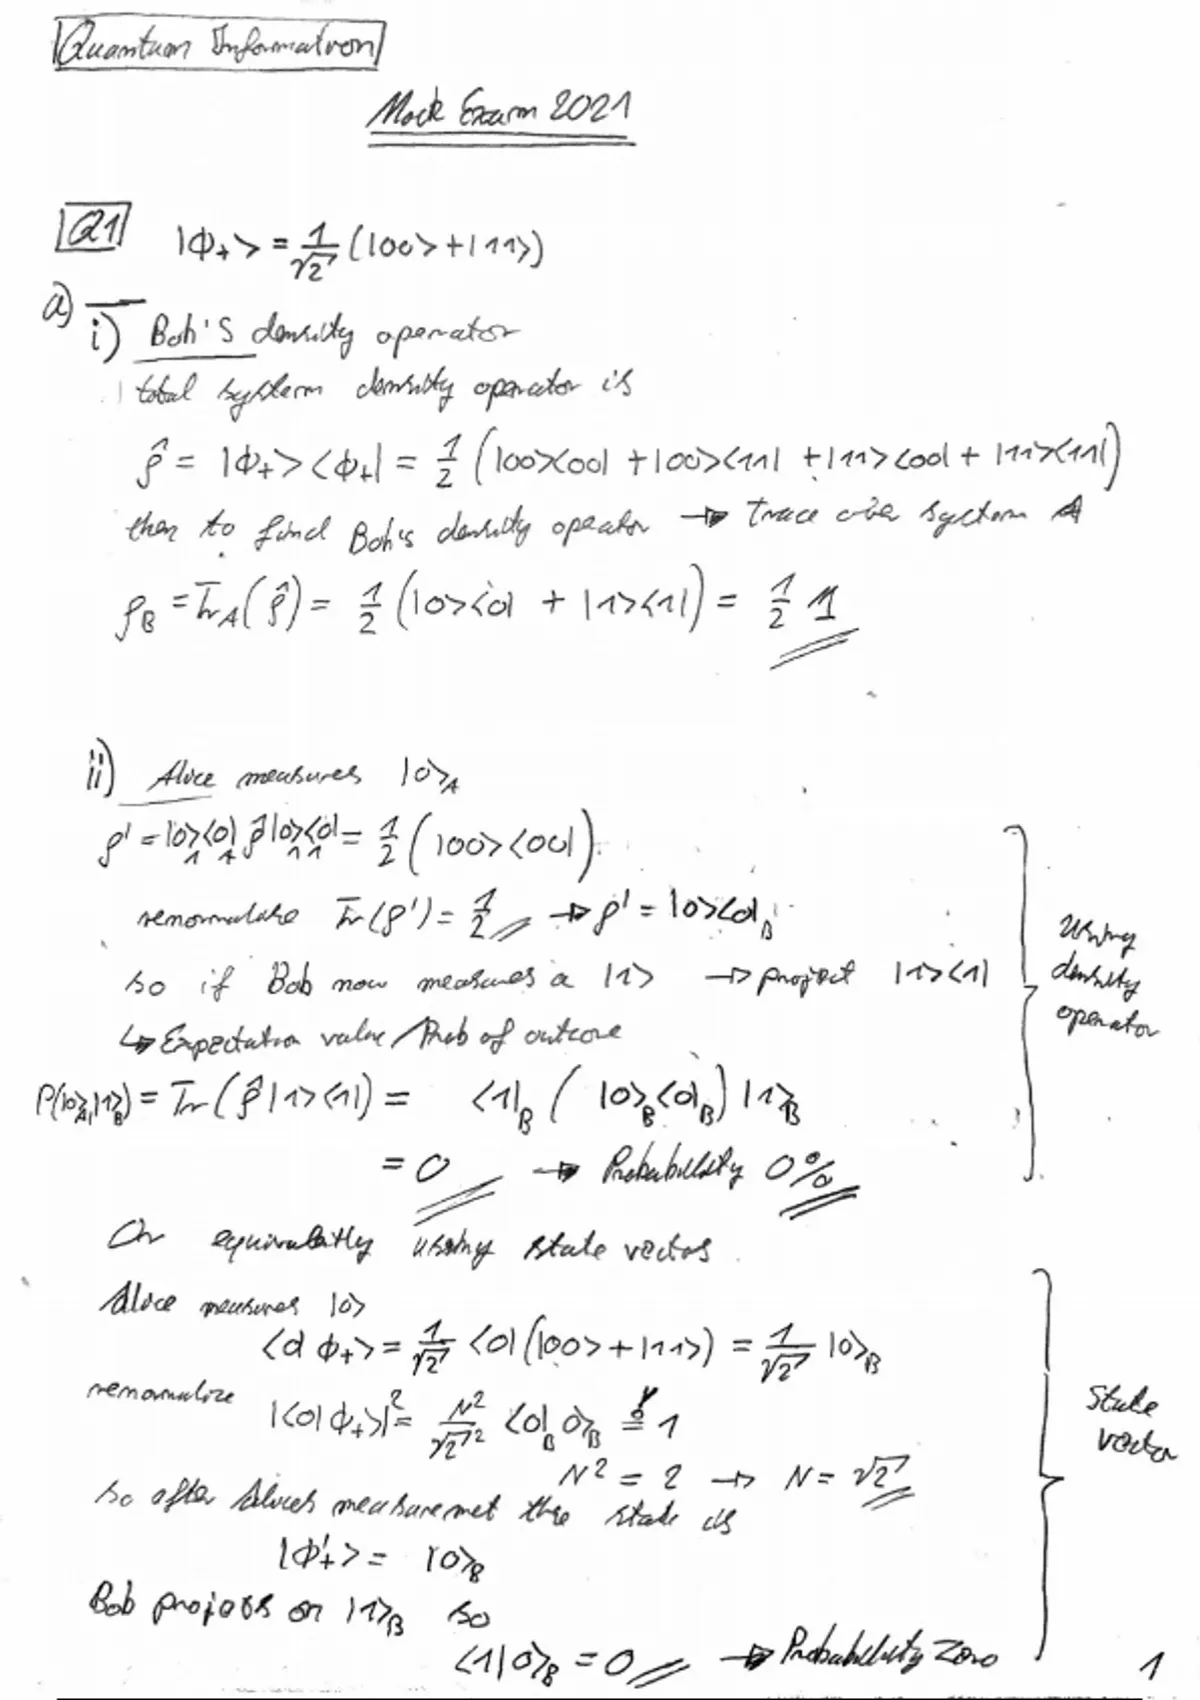 Quantum Information
Mock Exam 2021
Q1 |ϕ₊> = 1/√2 (|00> + |11>)
a) i) Bob's density operator
total system density operator is
ρ̂ = |ϕ₊><ϕ₊| = 1/2 (|00><00| + |00><11| + |11><00| + |11><11|)
then to find Bob's density operator → trace over system A
ρ_B = Tr_A(ρ̂) = 1/2 (|0><0| + |1><1|) = 1/2 𝟙
ii) Alice measures |0>_A
ρ' = |0>_A<0|_A ρ̂ |0>_A<0|_A = 1/2 (|00><00|)
renormalize Tr(ρ') = 1/2 → ρ' = |0><0|_B
so if Bob now measures a |1> → project |1><1|
↳ Expectation value / Prob of outcome
P(|0>_A, |1>_B) = Tr(ρ̂ |1><1|) = <1|_B ( |0>_B<0|_B ) |1>_B
= 0 → Probability 0%
Using
density
operator
Or equivalently using state vector.
Alice measures |0>
<0|ϕ₊> = 1/√2 <0| (|00> + |11>) = 1/√2 |0>_B
renormalize |<0|ϕ₊>|² = N²/√2² <0|_B 0>_B = 1
N² = 2 → N = √2
so after Alices measuremet the state is
|ϕ'₊> = |0>_B
Bob projects on |1>_B so
<1|0>_B = 0 → Probability Zero
State
vector
1